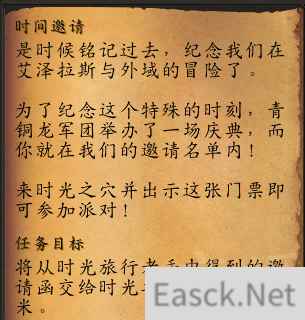 时间邀请
是时候铭记过去，纪念我们在
艾泽拉斯与外域的冒险了。
为了纪念这个特殊的时刻，青
铜龙军团举办了一场庆典，而
你就在我们的邀请名单内！
来时光之穴并出示这张门票即
可参加派对！
任务目标
将从时光旅行者手中得到的邀
请函交给时光
米。
Easck.Net